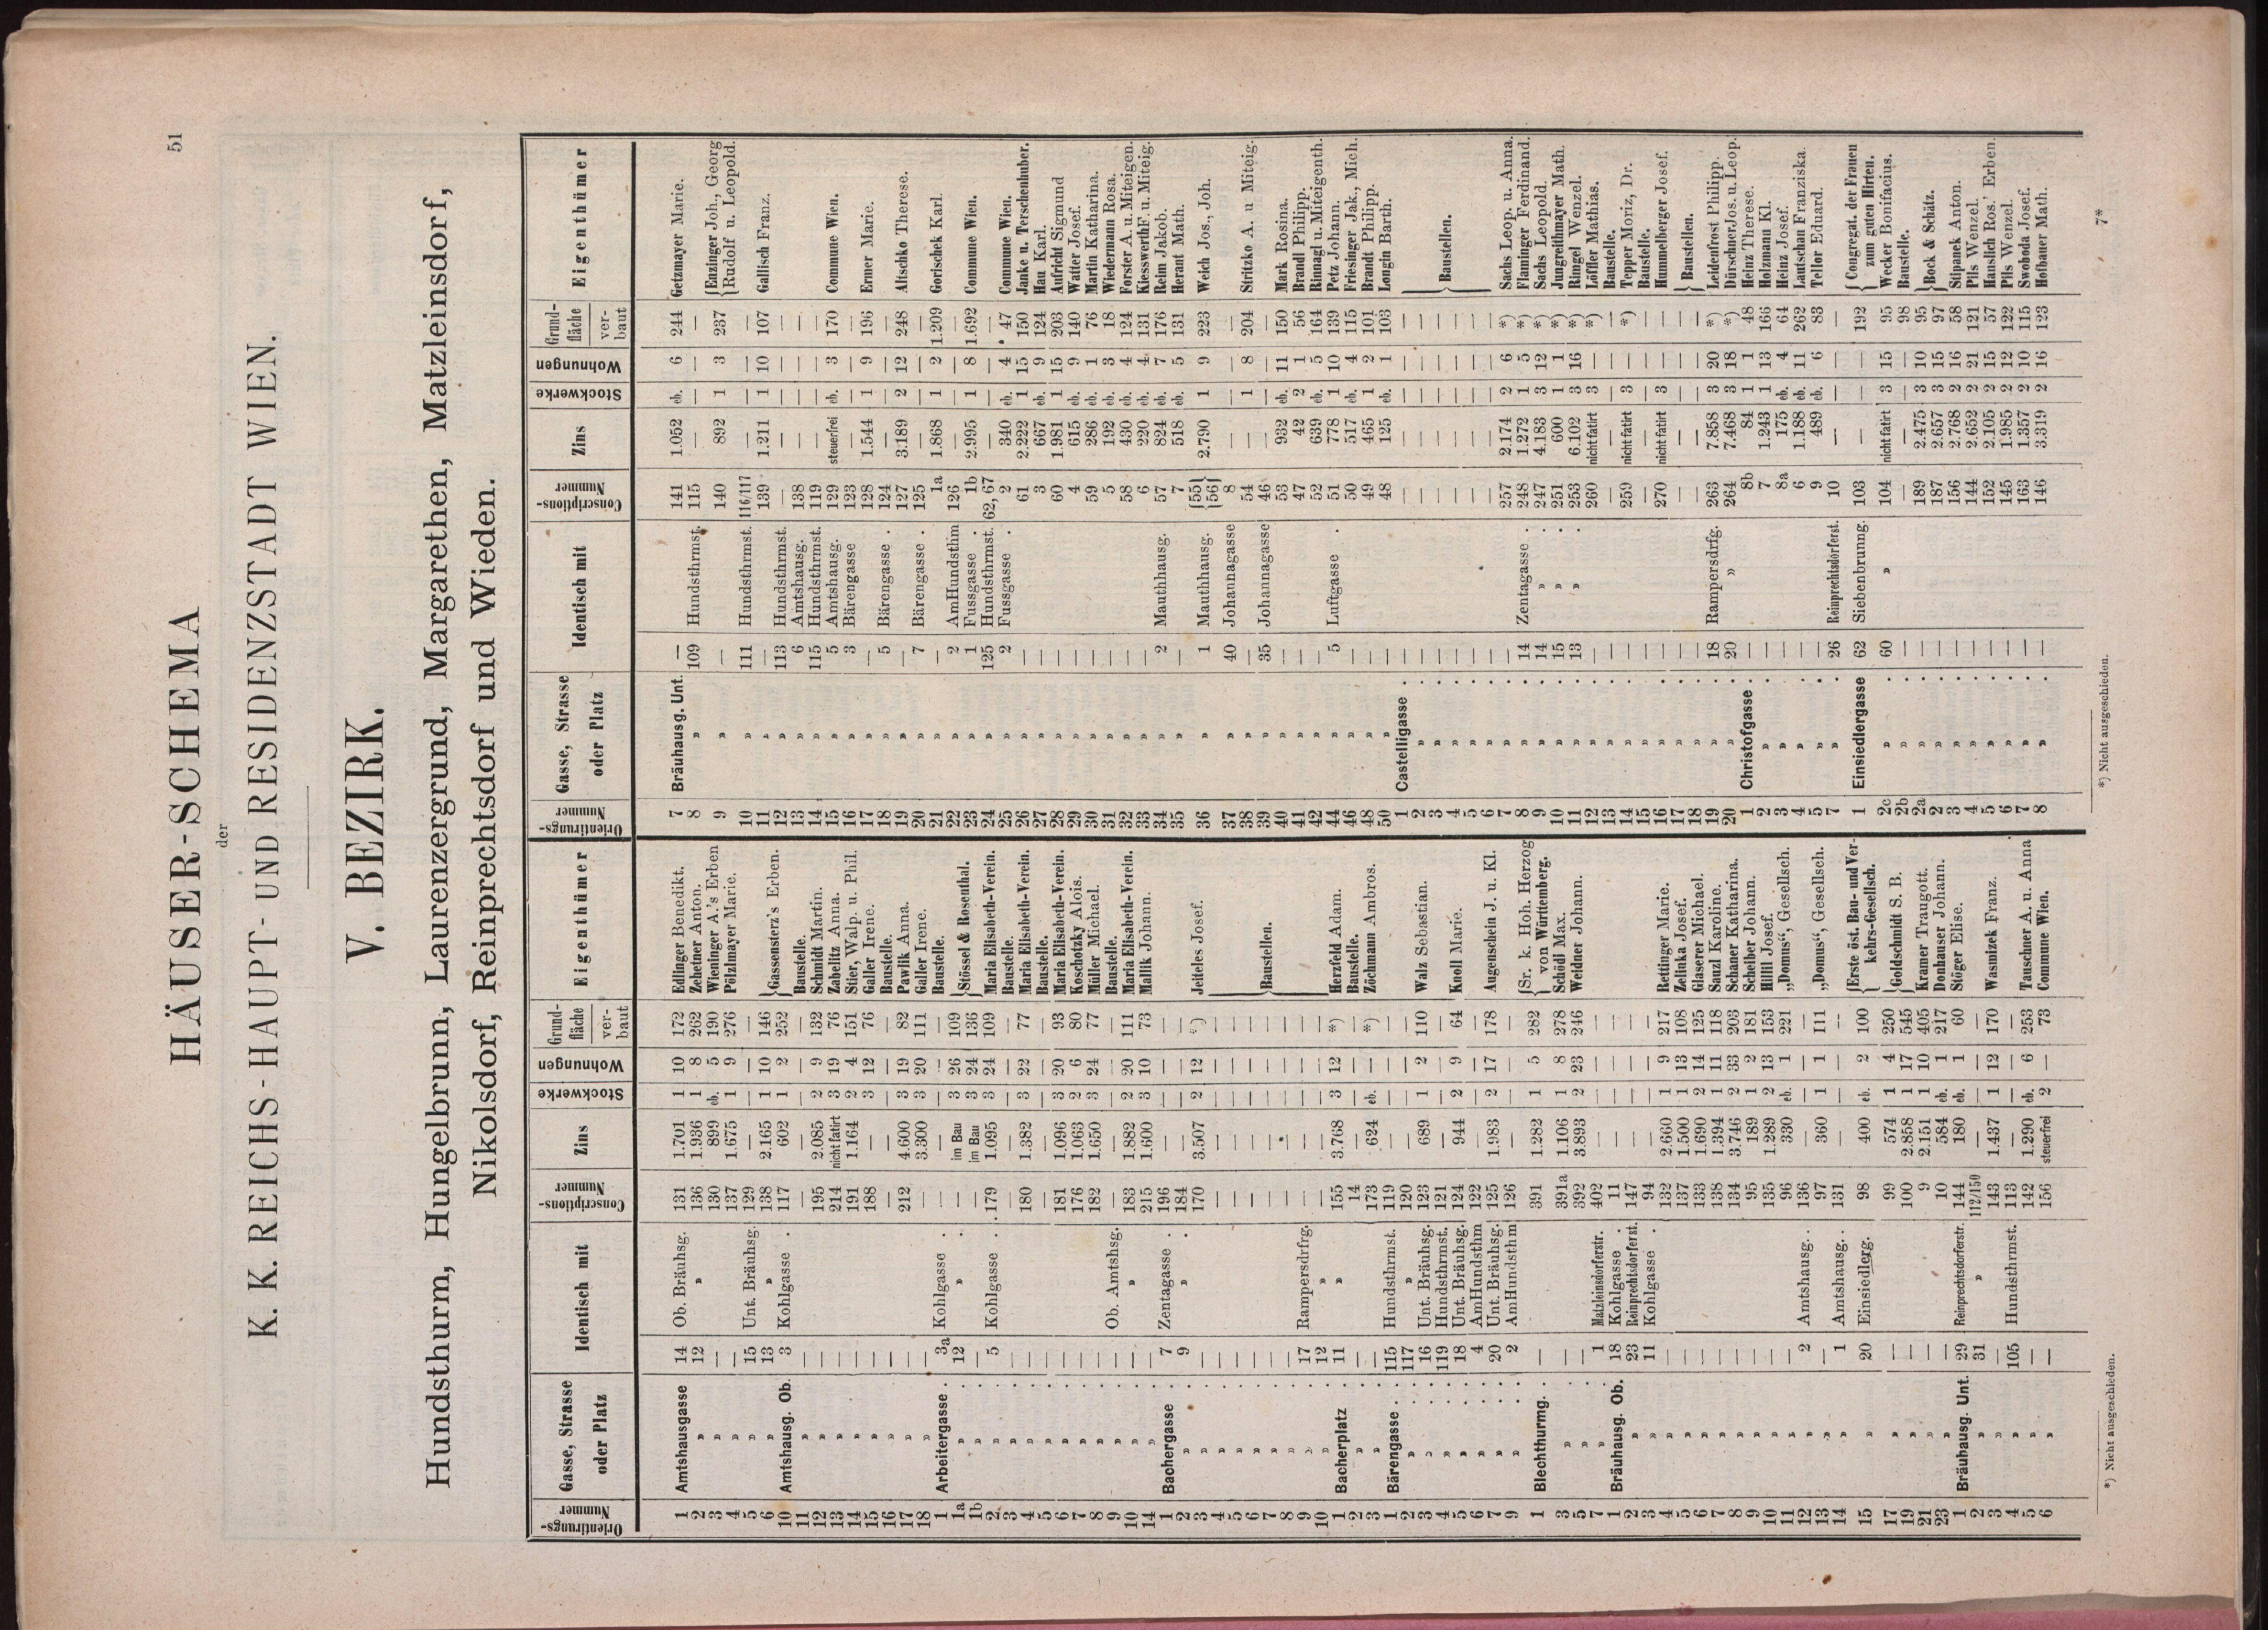 51
HÄUSER-SCHEMA
der
K. K. REICHS-HAUPT- UND RESIDENZSTADT WIEN.
V. BEZIRK.
Hundsthurm, Hungelbrunn, Laurenzergrund, Margarethen, Matzleinsdorf,
Nikolsdorf, Reinprechtsdorf und Wieden.
Orientirungs-Nummer Gasse, Strasse oder Platz Identisch mit Conscriptions-Nummer Zins Stockwerke Wohnungen Grundfläche verbaut Eigenthümer
1 Amtshausgasse 14 Ob. Bräuhsg. 131 1.701 1 10 172 Edlinger Benedikt.
2 » 12 » 136 1.936 1 8 262 Zehetner Anton.
3 » — 130 899 eb. 5 190 Wieninger A.'s Erben
4 » — 137 1.675 1 9 276 Pölzlmayer Marie.
5 » 15 Unt. Bräuhsg. 129 — — — —
6 » 13 » 138 2.165 1 10 146 Gassensterz's Erben.
10 Amtshausg. Ob. 3 Kohlgasse . 117 602 1 2 252
11 » — — — — — — Baustelle.
12 » — 195 2.085 2 9 132 Schmidt Martin.
13 » — 214 nicht fatirt 3 19 76 Zabelitz Anna.
14 » — 191 1.164 2 4 151 Stier, Walp. u. Phil.
15 » — 188 — 3 12 76 Galler Irene.
16 » — — — — — — Baustelle.
17 » — 212 4.600 3 19 82 Pawlik Anna.
18 » — — 3.300 3 20 111 Galler Irene.
1 Arbeitergasse . 3a Kohlgasse . — — — — — Baustelle.
1a » . 12 » . — im Bau 3 26 109 Stössel & Rosenthal.
1b » . — — im Bau 3 24 136
2 » . 5 Kohlgasse . 179 1.095 3 24 109 Maria Elisabeth-Verein.
3 » . — — — — — — Baustelle.
4 » . — 180 1.382 3 22 77 Maria Elisabeth-Verein.
5 » . — — — — — — Baustelle.
6 » . — 181 1.096 3 20 93 Maria Elisabeth-Verein.
7 » . — 176 1.063 2 6 80 Koschotzky Alois.
8 » . — 182 1.650 3 24 77 Müller Michael.
9 » . — Ob. Amtshsg. — — — — — Baustelle.
10 » . — » 183 1.882 2 20 111 Maria Elisabeth-Verein.
14 » . — 215 1.600 3 10 73 Mallik Johann.
1 Bachergasse . 7 Zentagasse . 196 — — — —
2 » . 9 » . 184 — — — —
3 » . — 170 3.507 2 12 *) Jeiteles Josef.
4 » . — — — — — —
5 » . — — — — — —
6 » . — — — — — —
7 » . — — — — — — Baustellen.
8 » . — — — — — —
9 » . 17 Rampersdrfrg. — — — — —
10 » . 12 » — — — — —
1 Bacherplatz . 11 » 155 3.768 3 12 *) Herzfeld Adam.
2 » . — 14 — — — — Baustelle.
3 » . — 173 624 eb. — *) Zöchmann Ambros.
1 Bärengasse . . 115 Hundsthrmst. 119 — — — —
2 » . 117 » 120 — — — —
3 » . 16 Unt. Bräuhsg. 123 689 1 2 110 Walz Sebastian.
4 » . 119 Hundsthrmst. 121 — — — —
5 » . 18 Unt. Bräuhsg. 124 944 2 9 64 Knoll Marie.
6 » . 4 AmHundsthm 122 — — — —
7 » . 20 Unt. Bräuhsg. 125 1.983 2 17 178 Augenschein J. u. Kl.
9 » . 2 AmHundsthm 126 — — — —
1 Blechthurmg. . — 391 1.282 1 5 282 Sr. k. Hoh. Herzog von Württemberg.
3 » . — 391a 1.106 1 8 278 Schödl Max.
5 » . — 392 3.893 2 23 246 Weidner Johann.
7 » . 1 Matzleinsdorferstr. 402 — — — —
1 Bräuhausg. Ob. 18 Kohlgasse . 11 — — — —
2 » 23 Reinprechtsdorferst. 147 — — — —
3 » 11 Kohlgasse . 94 — — — —
4 » — 132 2.660 1 9 217 Rettinger Marie.
5 » — 137 1.500 1 13 108 Zelinka Josef.
6 » — 133 1.690 2 14 125 Glaserer Michael.
7 » — 138 1.394 1 11 118 Sauzl Karoline.
8 » — 134 3.746 2 33 203 Schaner Katharina.
9 » — 95 189 1 2 181 Scheiber Johann.
10 » — 135 1.289 2 13 153 Hillil Josef.
11 » — 96 330 eb. 1 221 „Domus“, Gesellsch.
12 » 2 Amtshausg. . 136 — — — —
13 » — 97 360 1 1 111 „Domus“, Gesellsch.
14 » 1 Amtshausg. . 131 — — — —
15 » 20 Einsiedlerg. 98 400 eb. 2 100 Erste öst. Bau- und Verkehrs-Gesellsch.
17 » — 99 574 1 4 250 Goldschmidt S. B.
19 » — 100 2.858 1 17 545
21 » — 9 2.151 1 10 405 Kramer Traugott.
23 » — 10 584 eb. 1 217 Donhauser Johann.
1 Bräuhausg. Unt. 29 Reinprechtsdorferstr. 144 180 eb. 1 60 Stöger Elise.
2 » 31 » 112/150 — — — —
3 » — 143 1.437 1 12 170 Wasmizek Franz.
4 » 105 Hundsthrmst. 113 — — — —
5 » — 142 1.290 eb. 6 253 Tauschner A. u. Anna
6 » — 156 steuerfrei 2 — 73 Commune Wien.
*) Nicht ausgeschieden.
Orientirungs-Nummer Gasse, Strasse oder Platz Identisch mit Conscriptions-Nummer Zins Stockwerke Wohnungen Grundfläche verbaut Eigenthümer
7 Bräuhausg. Unt. — 141 1.052 eb. 6 244 Getzmayer Marie.
8 » 109 Hundsthrmst. 115 — — — —
9 » — 140 892 1 3 237 Enzinger Joh., Georg Rudolf u. Leopold.
10 » 111 Hundsthrmst. 116/117 — — — —
11 » — 139 1.211 1 10 107 Gallisch Franz.
12 » 113 Hundsthrmst. — — — — —
13 » 6 Amtshausg. 138 — — — —
14 » 115 Hundsthrmst. 119 — — — —
15 » 5 Amtshausg. 129 steuerfrei eb. 3 170 Commune Wien.
16 » 3 Bärengasse 123 — — — —
17 » — 128 1.544 1 9 196 Ermer Marie.
18 » 5 Bärengasse . 124 — — — —
19 » — 127 3.189 2 12 248 Altschko Therese.
20 » 7 Bärengasse . 125 — — — —
21 » — 1a 1.868 1 2 1.209 Gorischek Karl.
22 » 2 AmHundsthm 126 — — — —
23 » 1 Fussgasse . 1b 2.995 1 8 1.692 Commune Wien.
24 » 125 Hundsthrmst. 62, 67 — — — —
25 » 2 Fussgasse . 2 340 eb. 4 47 Commune Wien.
26 » — 61 2.222 1 15 150 Janke u. Terschenhuber.
27 » — 3 667 eb. 9 124 Hau Karl.
28 » — 60 1.981 1 15 203 Aufricht Sigmund
29 » — 4 615 eb. 9 140 Watter Josef.
30 » — 59 286 eb. 1 76 Martin Katharina.
31 » — 5 192 eb. 3 18 Wiedermann Rosa.
32 » — 58 430 eb. 4 124 Forster A. u. Miteigen.
33 » — 6 220 eb. 4 131 Kiesswerth F. u. Miteig.
34 » 2 Mauthhausg. 57 824 eb. 7 176 Reim Jakob.
35 » — 7 518 eb. 5 131 Herant Math.
36 » 1 Mauthhausg. 55 56 2.790 1 9 223 Weich Jos., Joh.
37 » 40 Johannagasse 8 — — — —
38 » — 54 — 1 8 204 Stritzko A. u Miteig.
39 » 35 Johannagasse 46 — — — —
40 » — 53 932 eb. 11 150 Mark Rosina.
41 » — 47 42 2 1 56 Brandl Philipp.
42 » — 52 639 eb. 5 164 Rinnagl u. Miteigenth.
44 » 5 Luftgasse . 51 778 1 10 139 Petz Johann.
46 » — 50 517 eb. 4 115 Friesinger Jak., Mich.
48 » — 49 465 1 2 101 Brandt Philipp.
50 » — 48 125 eb. 1 103 Longin Barth.
1 Castelligasse . — — — — — —
2 » . — — — — — —
3 » . — — — — — — Baustellen.
4 » . — — — — — —
5 » . — — — — — —
6 » . — — — — — —
7 » . — 257 2.174 2 6 *) Sachs Leop. u. Anna.
8 » . 14 Zentagasse . 248 1.272 1 5 *) Flaminger Ferdinand.
9 » . 14 » . 247 4.183 3 12 *) Sachs Leopold.
10 » . 15 » . 251 600 1 1 *) Jungreithmayer Math.
11 » . 13 » . 253 6.102 3 16 *) Rimgel Wenzel.
12 » . — 260 nicht fatirt 3 — *) Löffler Mathias.
13 » . — — — — — — Baustelle.
14 » . — 259 nicht fatirt 3 — *) Tepper Moriz, Dr.
15 » . — — — — — — Baustelle.
16 » . — 270 nicht fatirt 3 — — Hummelberger Josef.
17 » . — — — — — — Baustellen.
18 » . — — — — — —
19 » . 18 Rampersdrfg. 263 7.858 3 20 *) Leidenfrost Philipp.
20 » . 20 » 264 7.468 3 18 *) Dürschner Jos. u. Leop.
1 Christofgasse . — 8b 84 1 1 48 Heinz Therese.
2 » . — 7 1.243 1 13 166 Holzmann Kl.
3 » — 8a 175 eb. 4 64 Heinz Josef.
4 » . — 6 1.188 eb. 11 262 Lautschan Franziska.
5 » . — 9 489 eb. 6 83 Tellor Eduard.
7 » . 26 Reinprechtsdorferst. 10 — — — —
1 Einsiedlergasse 62 Siebenbrunng. 103 — — — 192 Congregat. der Frauen zum guten Hirten.
2c » . 60 » 104 nicht fatirt 3 15 95 Wecker Bonifacius.
2b » . — — — — — 98 Baustelle.
2a » . — 189 2.475 3 10 95 Bock & Schätz.
2 » . — 187 2.657 3 15 97
3 » . — 156 2.768 2 16 58 Stipanek Anton.
4 » . — 144 2.652 2 21 121 Pils Wenzel.
5 » . — 152 2.105 2 15 57 Hauslich Ros.' Erben.
6 » . — 145 1.985 2 12 122 Pils Wenzel.
7 » . — 163 1.357 2 10 115 Swoboda Josef.
8 » . — 146 3.319 2 16 123 Hofbauer Math.
*) Nicht ausgeschieden.
7*